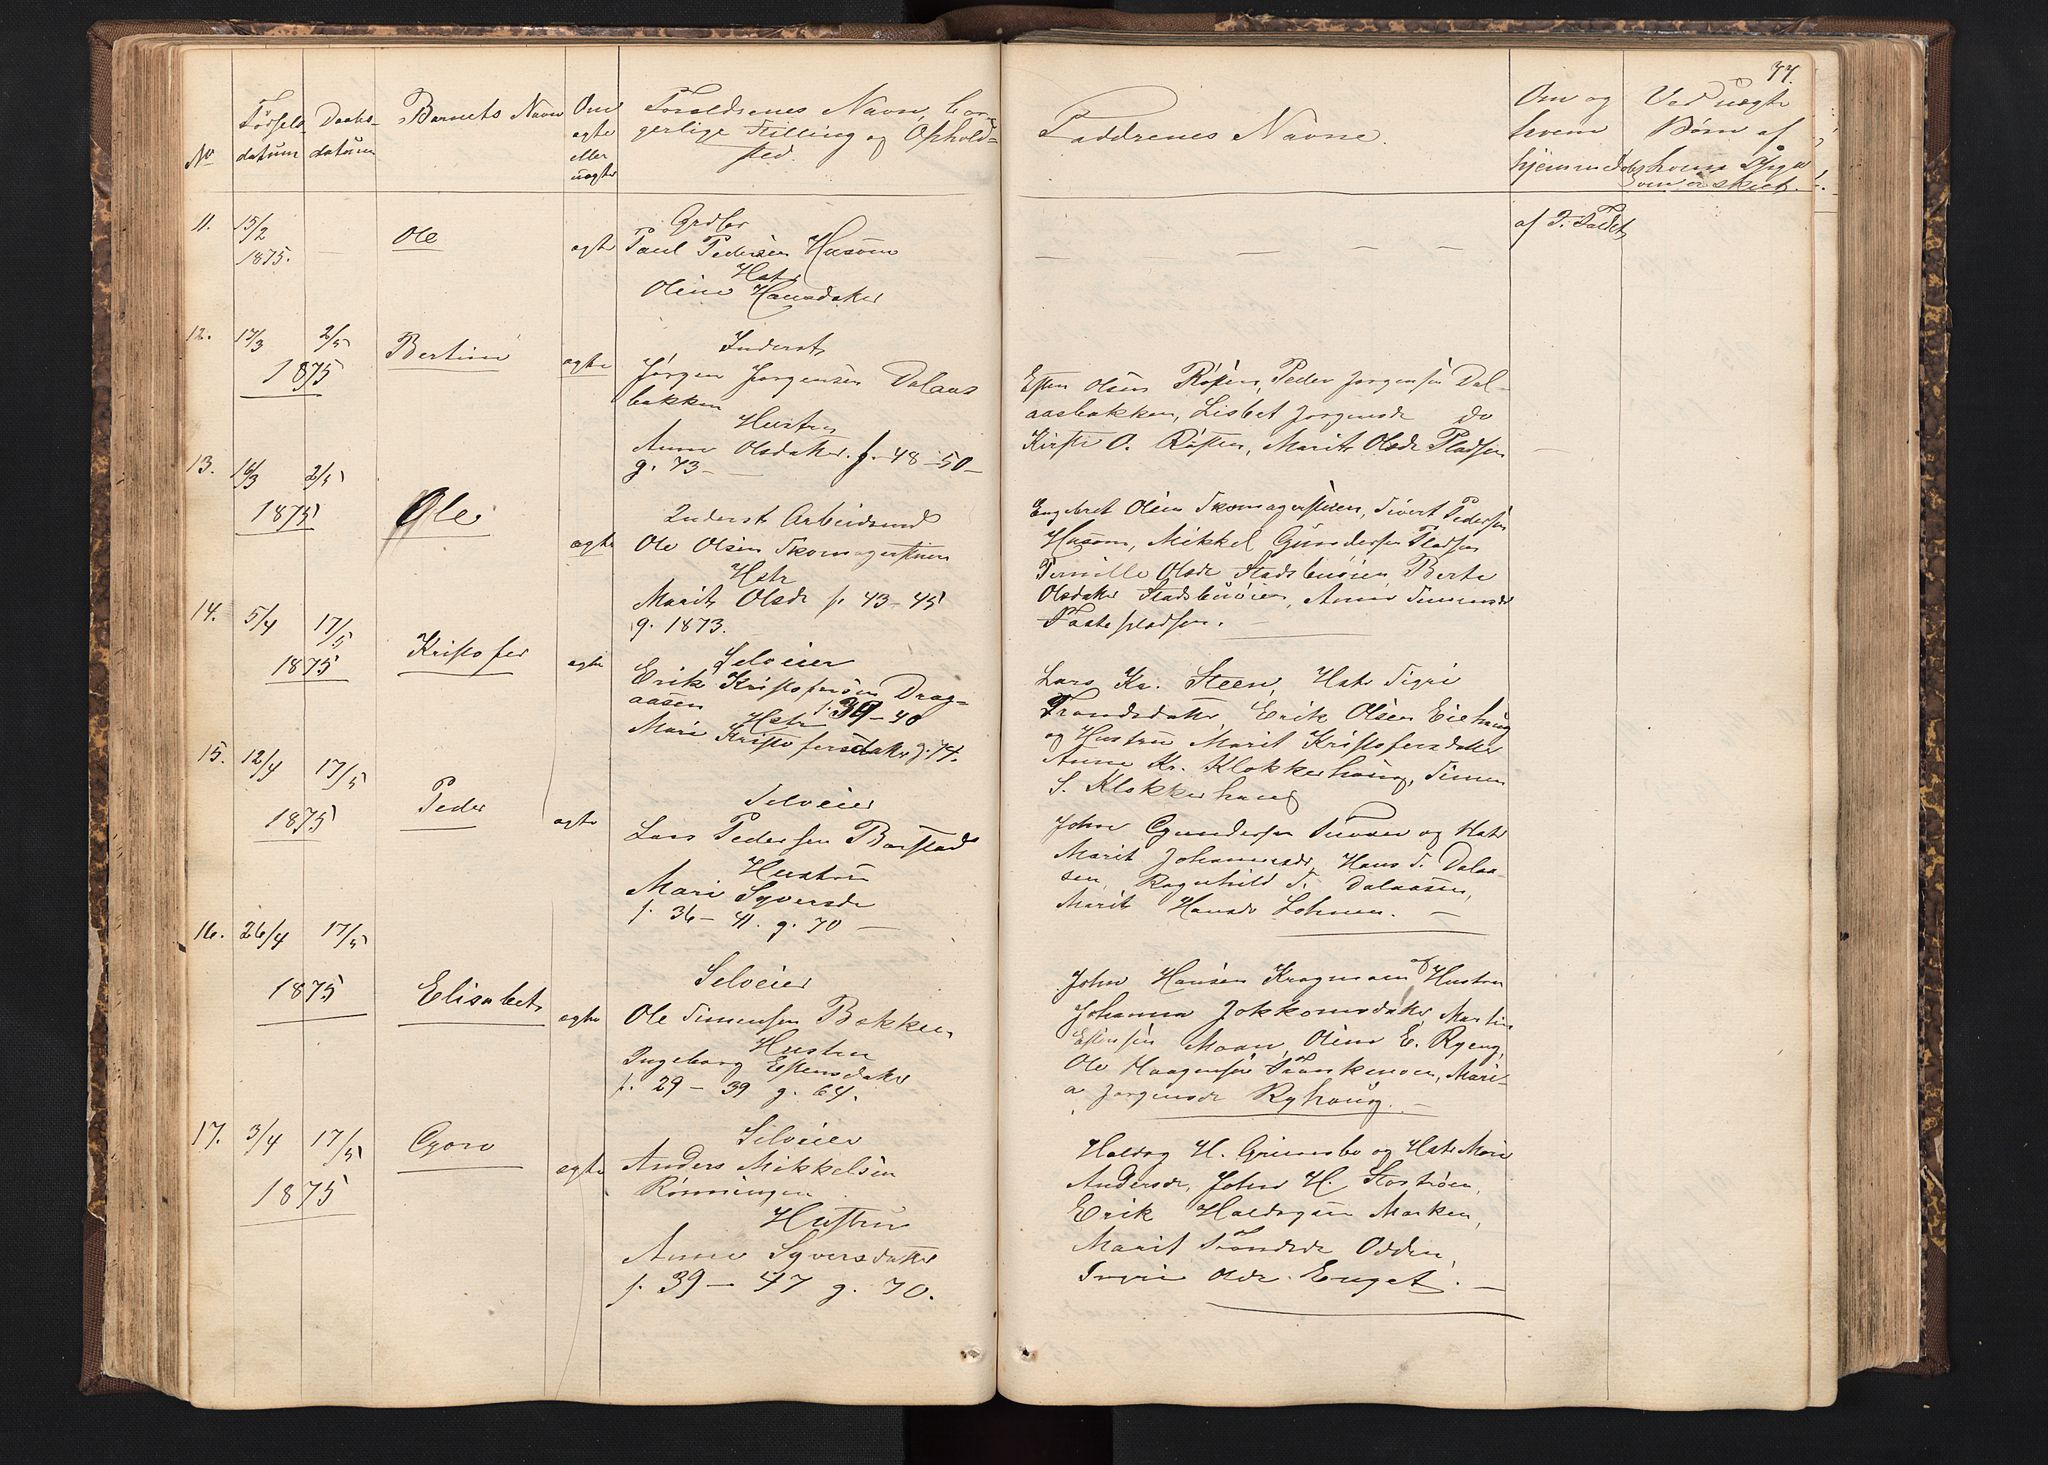 77.
No
Fødsels
datum
Daabs-
datum
Barnets Navn
Om
ægte
eller
uægte
Forældrenes Navn, bor-
gerlige Stilling og Ophold-
sted.
Faddrenes Navne.
Om og
hvem
hjemmedøbt
Ved uægte
Børn af
11. 15/2
1875.
Ole
ægte
Grdbr
Paul Pedersen Husom
Hstr
Oline Hansdatter
af P. Faldet
12. 17/3 2/5
1875
Bertine
ægte
Inderst
Jørgen Jørgensen Dalaas
bakken
Hustru
Anne Olsdatter f. 48-50-
g. 73-
Esten Olsen Røsten, Peder Jørgensen Dal-
aasbakken, Lisbet Jørgensdr do
Kirsti O. Røsten, Marit Olsdr Pladsen
13. 16/3 2/5
1875
Ole
ægte
Inderst Arbeidsmd
Ole Olsen Skomagerstuen
Hstr
Marit Olsdr f. 43-45
g. 1873.
Engebret Olsen Skomagerstuen, Sivert Pedersen
Husom, Mikkel Gundersen Pladsen
Pernille Olsdr Stadsbuøien, Berte
Olsdatter Stadsbuøien, Anne Simensdr
Taatepladsen.
14. 5/4 17/5
1875
Kristofer
ægte
Selveier
Erik Kristofersen Drag-
aasen f. 39-40
Hstr
Mari Kristofersdatter g. 74.
Lars Kr. Steen, Hstr Sigri
Trondsdatter, Erik Olsen Eiehaug
og Hustru Marit Kristofersdatter
Anne Kr. Klokkerhaug, Simen
S. Klokkerhaug
15. 12/4 17/5
1875
Peder
ægte
Selveier
Lars Pedersen Borstad
Hustru
Mari Syversdr
f. 36-41. g. 70-
John Gundersen og Hstr
Marit Johannesdr, Hans S. Dalaa-
sen, Ragnhild S. Dalaasen,
Marit Hansdr Lohnen. -
16. 26/4 17/5
1875
Elisabet
ægte
Selveier
Ole Simensen Bakken
Hustru
Ingeborg Estensdatter
f. 29-39 g. 64.
John Hansen Kragmoen og Hustru
Johanna Jokkomsdatter, Martin
Estensen Moan, Oline E. Ryeng,
Ole Haagensen Trønkemoen, Mari-
a Jørgensdr Ryhaug. -
17. 3/4 17/5
1875
Gjoro
ægte
Selveier
Anders Mikkelsen
Rønningen
Hustru
Anne Syversdatter
f. 39-47 g. 70.
Haldog H. Grimsbo og Hstr Mari
Andersdr, John H. Stostrøen,
Erik Haldogsen Moeken,
Marit Trondsdr Odden,
Ingri Olsdr Enget. -